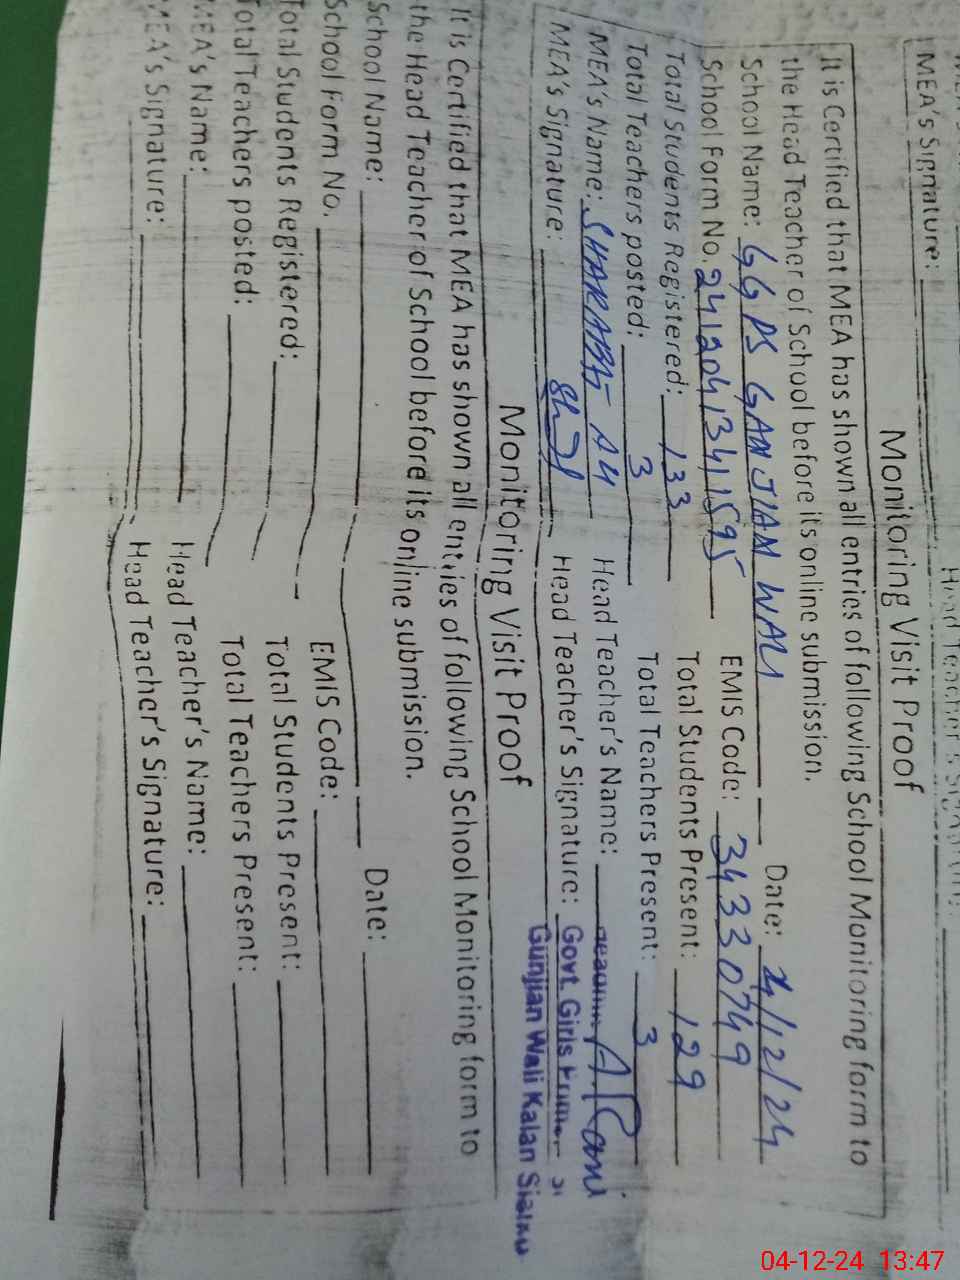 MEA's Signature:
Monitoring Visit Proof
It is Certified that MEA has shown all entries of following School Monitoring form to
the Head Teacher of School before its online submission.
School Name: GGPS GANJIAN WALI Date: 4/12/24
School Form No. 2412041341595 EMIS Code: 34330749
Total Students Registered: 133 Total Students Present: 129
Total Teachers posted: 3 Total Teachers Present: 3
MEA's Name: SHARAFAT ALI Head Teacher's Name:
MEA's Signature: Head Teacher's Signature: Govt. Girls
Gunjian Wali Kalan
Monitoring Visit Proof
It is Certified that MEA has shown all entries of following School Monitoring form to
the Head Teacher of School before its online submission.
School Name: Date:
School Form No. EMIS Code:
Total Students Registered: Total Students Present:
Total Teachers posted: Total Teachers Present:
MEA's Name: Head Teacher's Name:
MEA's Signature: Head Teacher's Signature:
04-12-24 13:47